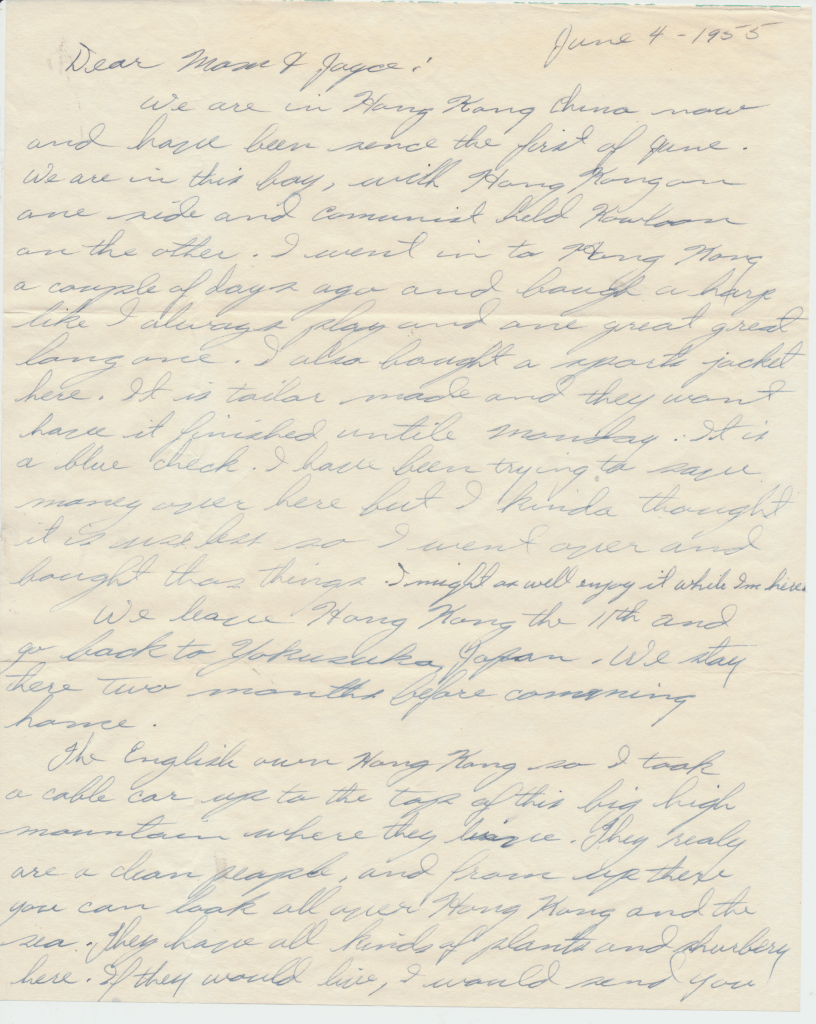 June 4 - 1955
Dear Mom & Joyce!
We are in Hong Kong China now
and have been sence the first of June.
We are in this bay, with Hong Kong on
one side and comunist held Kowloon
on the other. I went in to Hong Kong
a couple of days ago and bough a harp
like I always play and one great great
long one. I also bought a sports jacket
here. It is tailor made and they wont
have it finished untile monday. It is
a blue check. I have been trying to save
money over here but I kinda thought
it is use less so I went over and
bought thos things. I might as well enjoy it while Im here
We leave Hong Kong the 11th and
go back to Yokusuka, Japan. We stay
there two months before comming
home.
The English own Hong Kong so I took
a cable car up to the top of this big high
mountain where they live. They realy
are a clean people, and from up there
you can look all over Hong Kong and the
sea. They have all kinds of plants and shurbery
here. If they would live, I would send you